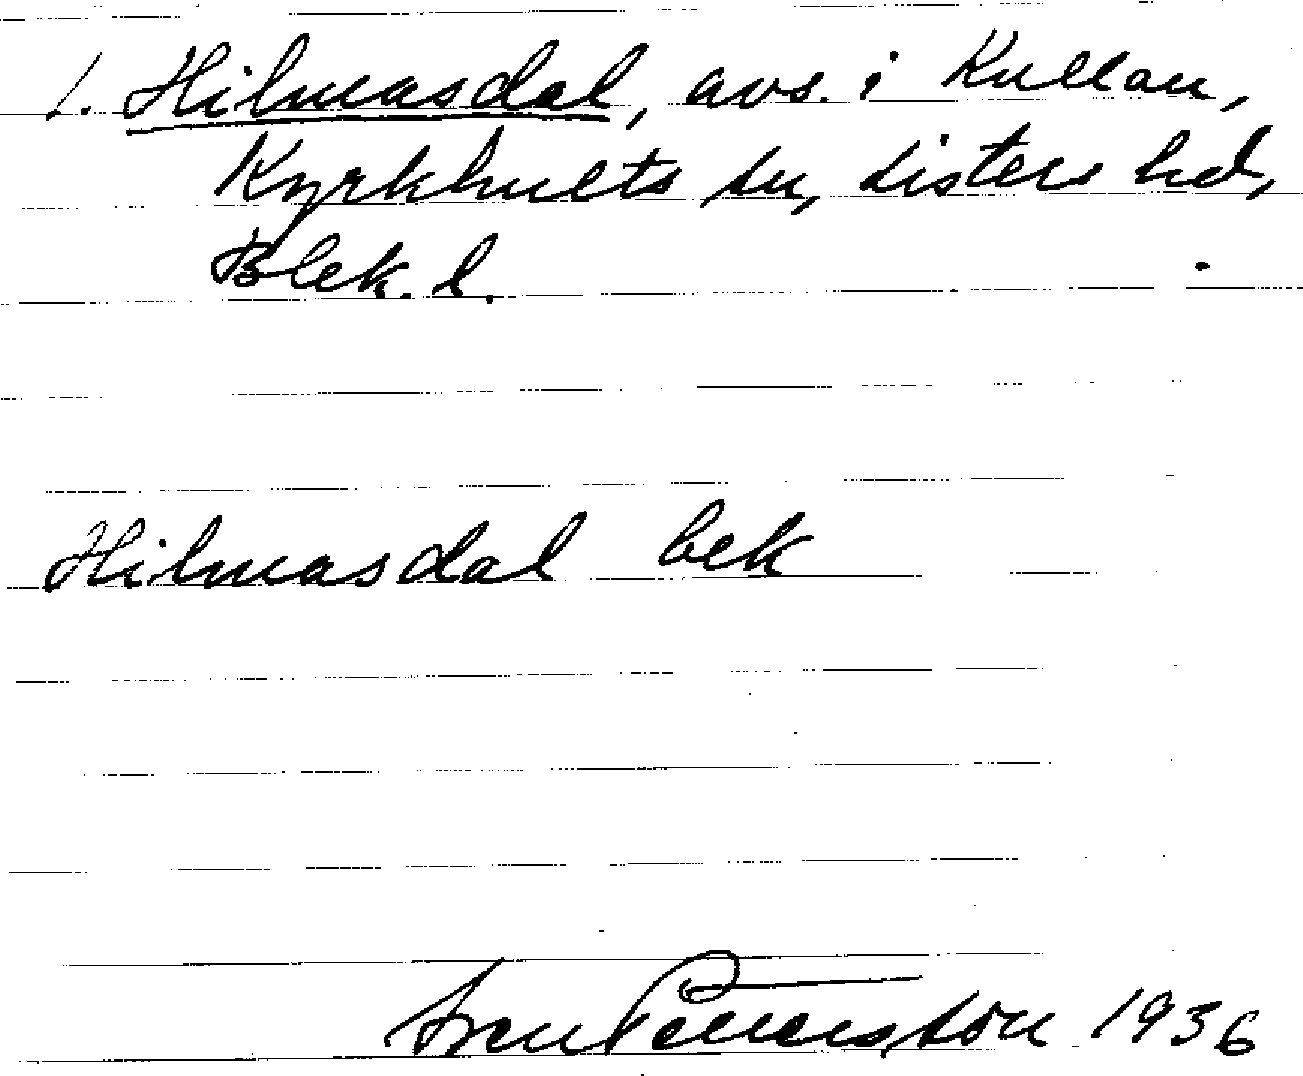 1. Hilmasdal, avs. i Kullan,
Kyrkhults sn, Listers hd,
Blek. l.
Hilmasdal bek
Sven Pettersson 1936